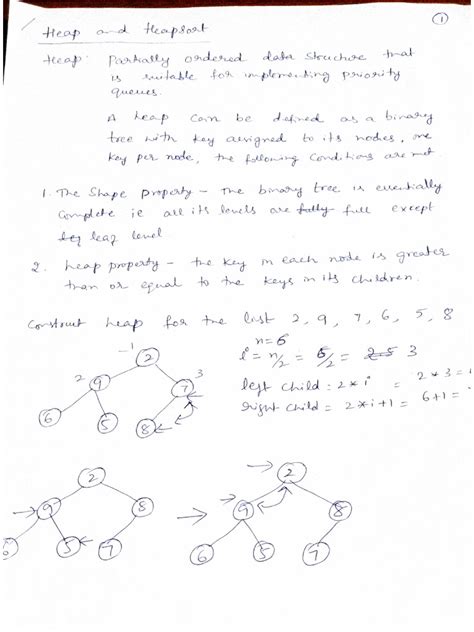 1
Heap and Heapsort
Heap: Partially ordered data structure that
is suitable for implementing priority
queues.
A heap can be defined as a binary
tree with key assigned to its nodes, one
key per node, the following conditions are met
1. The Shape property - the binary tree is essentially
complete ie all its levels are fully full except
leaf level
2. heap property - the key in each node is greater
than or equal to the keys in its children.
Construct heap for the list 2, 9, 7, 6, 5, 8
n=6
i = n/2 = 6/2 = 3
left child = 2*i = 2*3 =
right child = 2*i+1 = 6+1 =
1 2
2 9 7 3
6 5 8
2
9 8
6 5 7
2
9 8
6 5 7